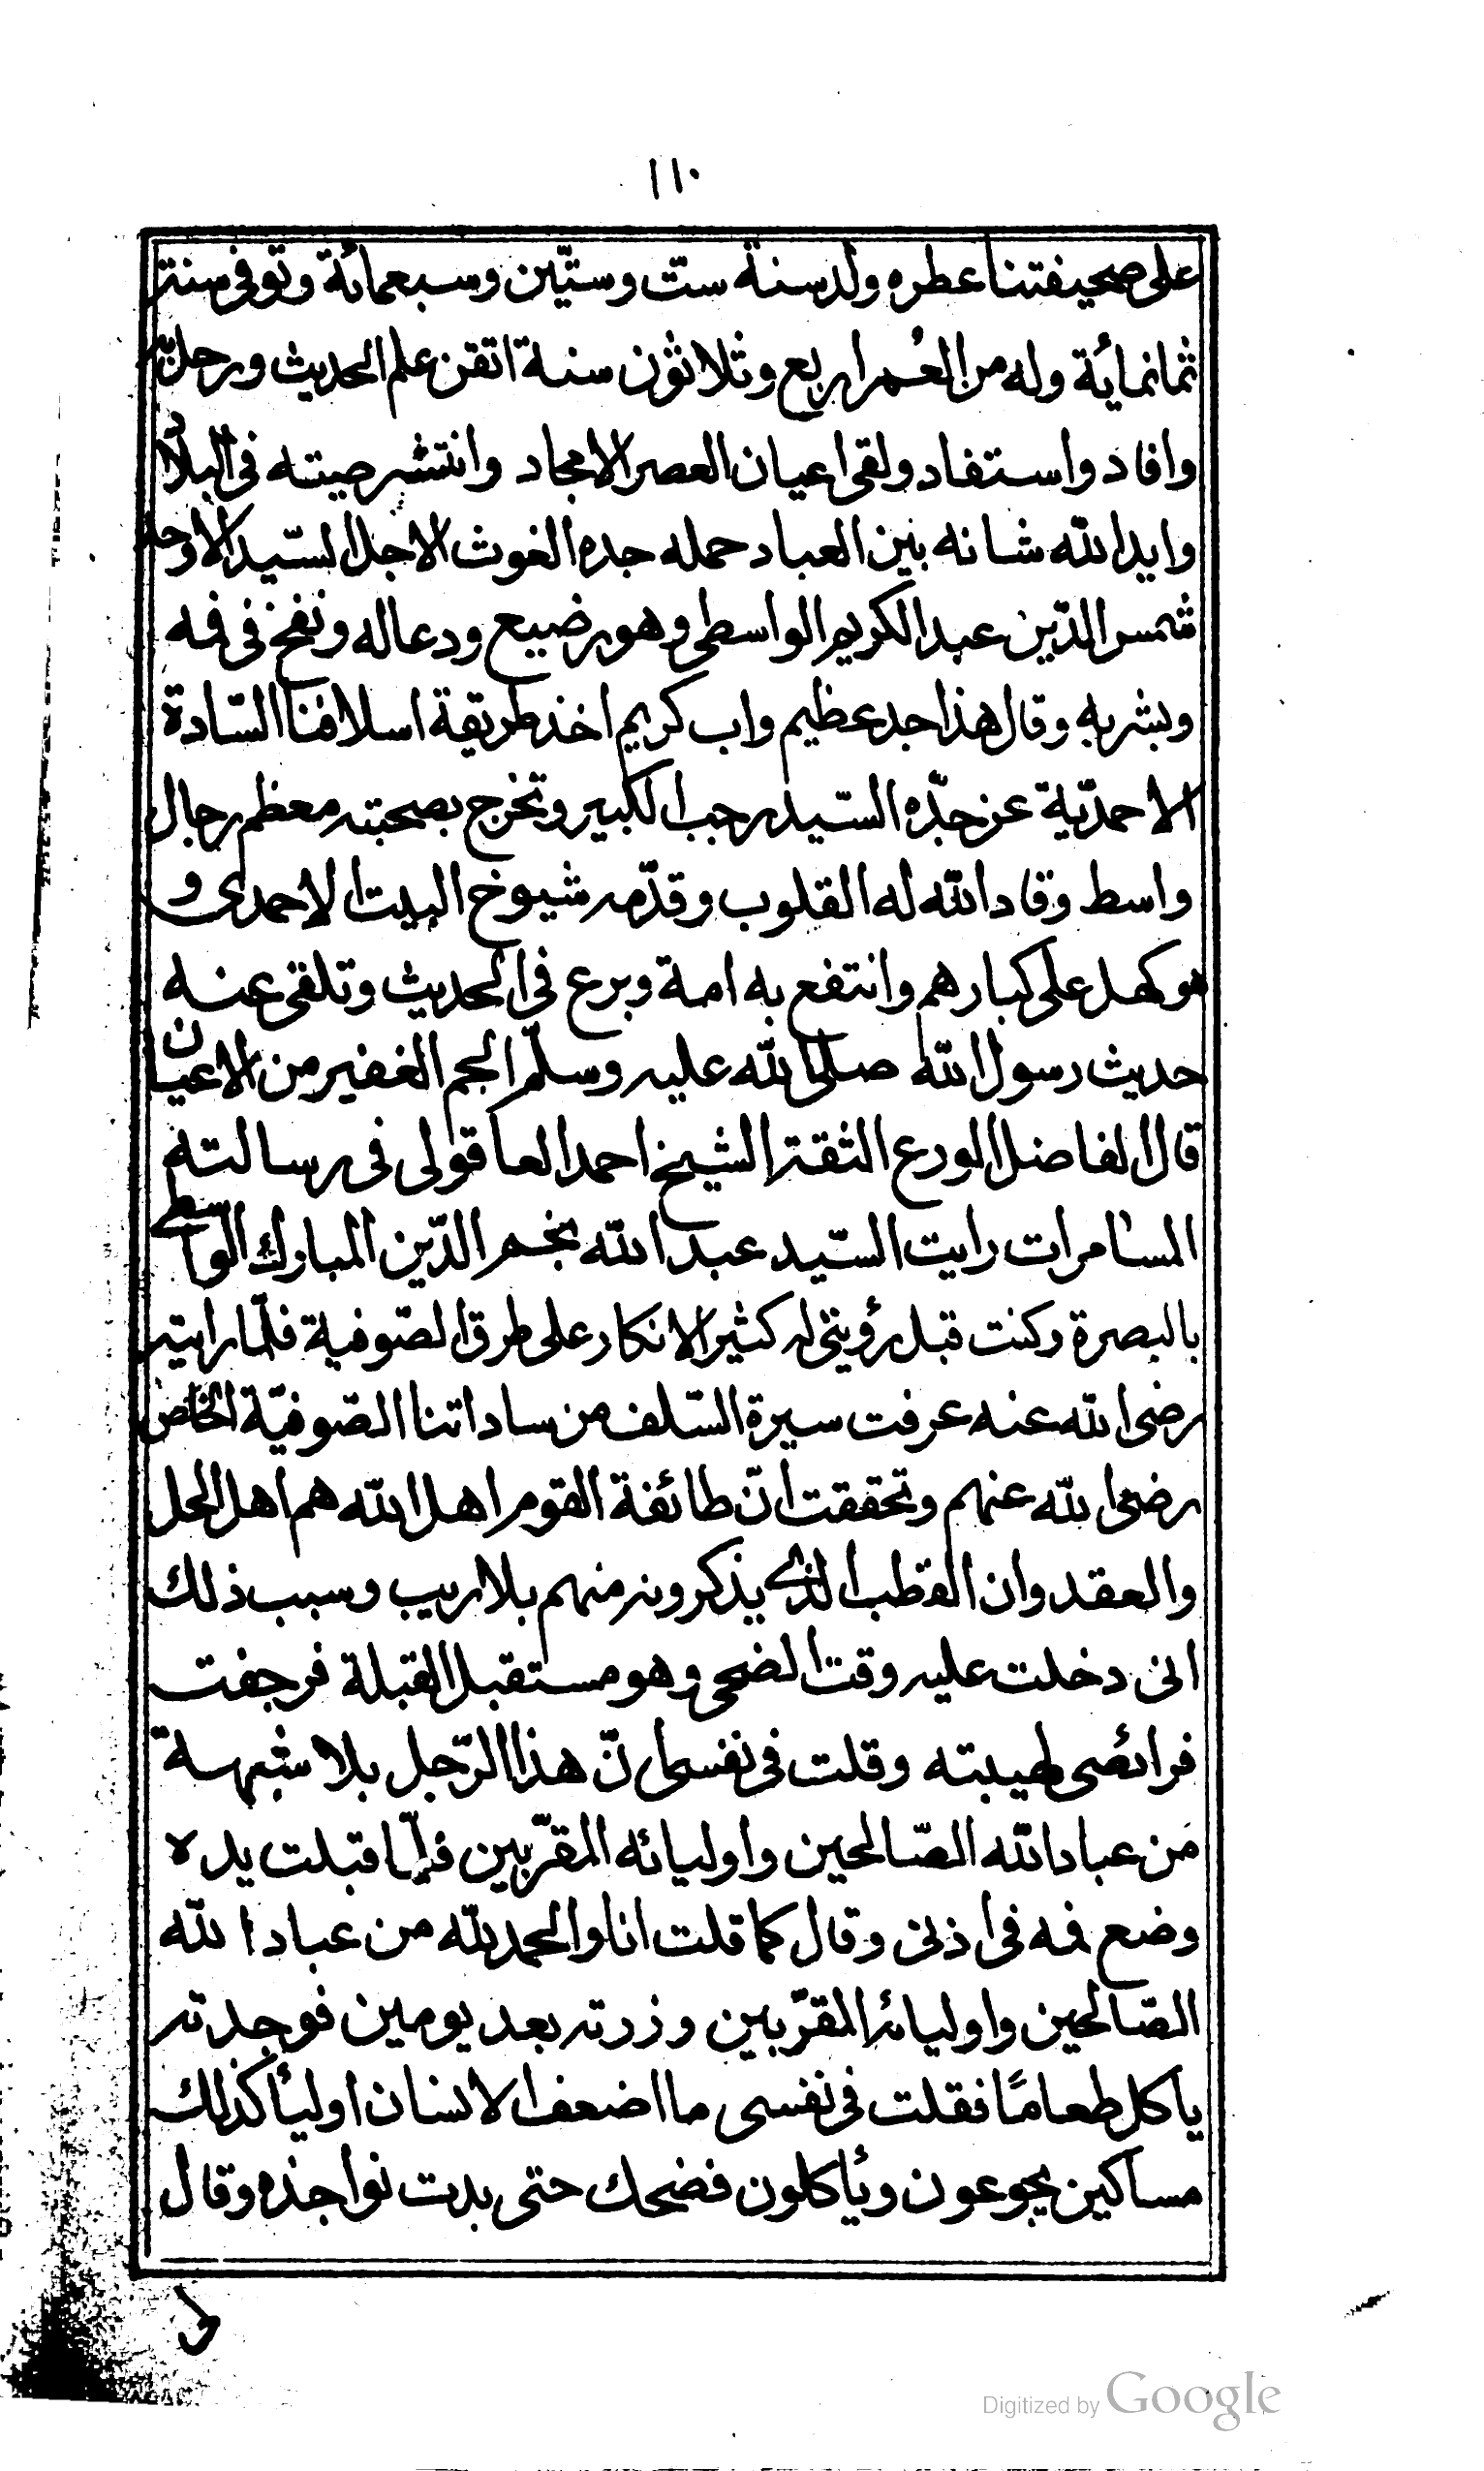 ١١٠
على صحيفتنا عطره ولد سنة ستّ وستّين وسبعمائة وتوفى سنة
ثمانمائة وله من العُمر اربع وثلاثون سنة اتقن علم الحديث ورحل
وافاد واستفاد ولقى اعيان العصر الامجاد وانتشر صيته فى البلاد
وايد الله شانه بين العباد حمله جده الغوث الاجل السّيد الاوحد
شمس الدّين عبد الكريم الواسطى وهو رضيع ودعا له ونفخ فى فمه
وبشر به وقال هذا جد عظيم واب كريم اخذ طريقة اسلافنا السّادة
الاحمدّية عن جدّه السّيد رجب الكبير وتخرج بصحبته معظم رجال
واسط وقاد الله له القلوب وقدّمه شيوخ البيت الاحمدى و
هو كهل على كبارهم وانتفع به امة وبرع فى الحديث وتلقى عنه
حديث رسول الله صلى الله عليه وسلّم الجم الغفير من الاعيان
قال الفاضل الورع الثقة الشيخ احمد العاقولى فى رسالته
المسامرات رايت السّيد عبد الله نجم الدّين المبارك الواسطى
بالبصرة وكنت قبل رؤيتى له كثير الانكار على طرق الصّوفية فلمّا رايته
رضى الله عنه عرفت سيرة السّلف من ساداتنا الصّوفيّة الخاص
رضى الله عنهم وتحققت انّ طائفة القوم اهل الله هم اهل الحل
والعقد وان القطب الذى يذكرونه منهم بلا ريب وسبب ذلك
انى دخلت عليه وقت الضحى وهو مستقبل القبلة فرجفت
فرائصى لهيبته وقلت فى نفسى انّ هذا الرّجل بلا شبهة
من عباد الله الصّالحين واوليائه المقرّبين فلمّا قبلت يده
وضع فمه فى اذنى وقال كما قلت انا والحمد لله من عباد الله
الصّالحين واوليائه المقرّبين وزرته بعد يومين فوجدته
ياكل طعامًا فقلت فى نفسى ما اضعف الانسان اوليأ كذلك
مساكين يجوعون وياكلون فضحك حتى بدت نواجذه وقال
لى
Digitized by Google